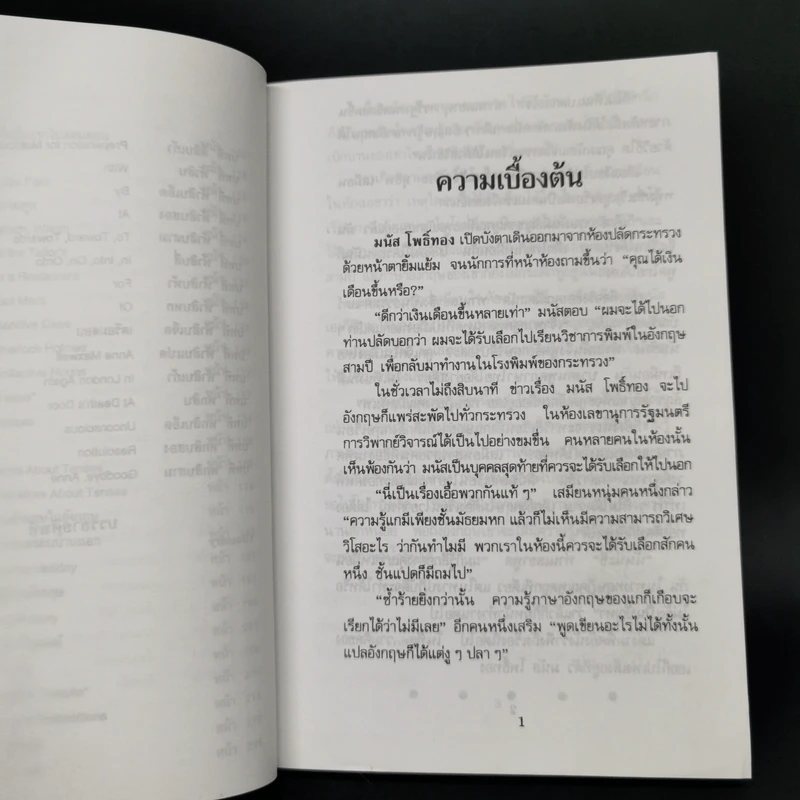 ความเบื้องต้น
มนัส โพธิ์ทอง เปิดบังตาเดินออกมาจากห้องปลัดกระทรวง
ด้วยหน้าตายิ้มแย้ม จนนักการที่หน้าห้องถามขึ้นว่า “คุณได้เงิน
เดือนขึ้นหรือ?”
“ดีกว่าเงินเดือนขึ้นหลายเท่า” มนัสตอบ “ผมจะได้ไปนอก
ท่านปลัดบอกว่า ผมจะได้รับเลือกไปเรียนวิชาการพิมพ์ในอังกฤษ
สามปี เพื่อกลับมาทำงานในโรงพิมพ์ของกระทรวง”
ในชั่วเวลาไม่ถึงสิบนาที ข่าวเรื่อง มนัส โพธิ์ทอง จะไป
อังกฤษก็แพร่สะพัดไปทั่วกระทรวง ในห้องเลขานุการรัฐมนตรี
การวิพากย์วิจารณ์ได้เป็นไปอย่างขมขื่น คนหลายคนในห้องนั้น
เห็นพ้องกันว่า มนัสเป็นบุคคลสุดท้ายที่ควรจะได้รับเลือกให้ไปนอก
“นี่เป็นเรื่องเอื้อพวกกันแท้ ๆ” เสมียนหนุ่มคนหนึ่งกล่าว
“ความรู้แกมีเพียงชั้นมัธยมหก แล้วก็ไม่เห็นมีความสามารถวิเศษ
วิโสอะไร ว่ากันทำไมมี พวกเราในห้องนี้ควรจะได้รับเลือกสักคน
หนึ่ง ชั้นแปดก็มีถมไป”
“ซ้ำร้ายยิ่งกว่านั้น ความรู้ภาษาอังกฤษของแกก็เกือบจะ
เรียกได้ว่าไม่มีเลย” อีกคนหนึ่งเสริม “พูดเขียนอะไรไม่ได้ทั้งนั้น
แปลอังกฤษก็ได้แต่งู ๆ ปลา ๆ”
1